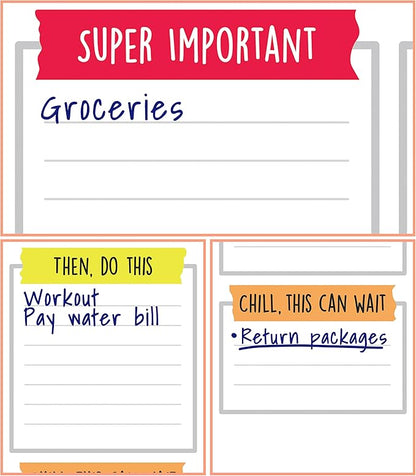 SUPER IMPORTANT
Groceries
THEN, DO THIS
Workout
Pay water bill
CHILL, THIS CAN WAIT
•Return packages